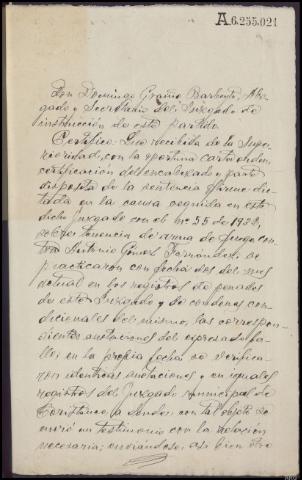 A.6.255.021
Don Domingo Graiño Barbeito, Abo-
gado y Secretario del Juzgado de
instrucción de este partido.
Certifico: Que recibida de la Supe-
rioridad, con la oportuna carta orden,
certificación del encabezado y parte
dispositiva de la sentencia firme dic-
tada en la causa seguida en este
dicho Juzgado con el nº 55 de 1932,
sobre tenencia de arma de fuego con-
tra Antonio Gómez Fernández, se
practicaron con fecha dos del mes
actual en los registros de penados
de este Juzgado y de condenas con-
dicionales del mismo, las correspon-
dientes anotaciones del expresado fa-
llo; en la propia fecha se verifica-
ron idénticas anotaciones y en iguales
registros del Juzgado municipal de
a donde con tal objeto se
envió un testimonio con la relación
necesaria; enviándose, así bien otro